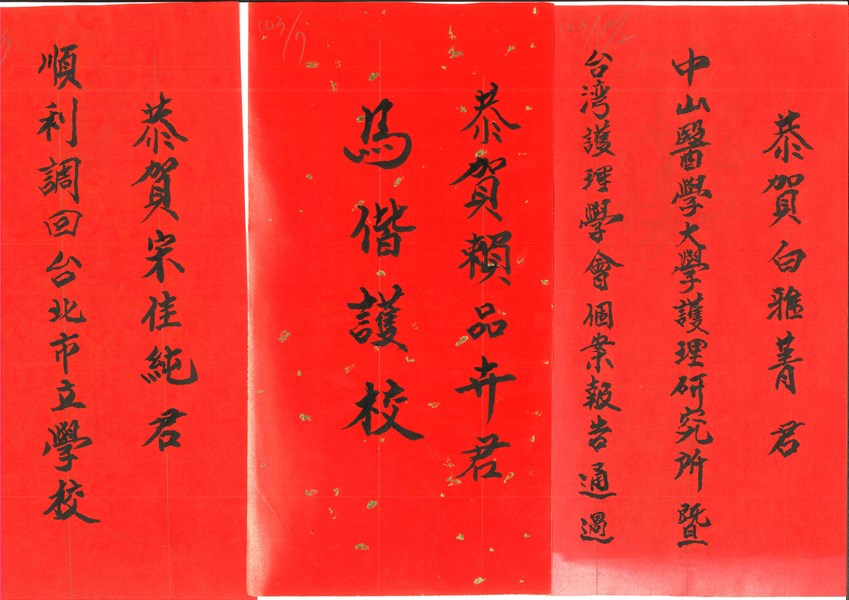 恭賀白雅菁君
中山醫學大學護理研究所暨
台湾護理學會個案報告通過
103/7
恭賀賴品卉君
馬偕護校
恭賀宋佳純君
順利調回台北市立學校